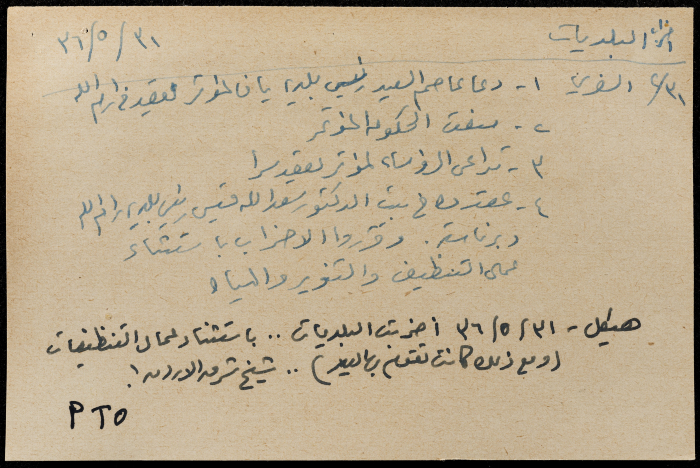 اضراب البلديات ٣١/٥/٣٦
٣١/٥ السفري ١- دعا عاصم السعيد رئيس بلدية يافا لمؤتمر يعقد في رام الله
٢- منعت الحكومة المؤتمر
٣- تداعى الرؤساء لمؤتمر يعقد سرا
٤- عقدوه في بيت الدكتور سعد الله قسيس رئيس بلدية رام الله
وبرئاسته. وقرروا الاضراب باستثناء
عمال التنظيف والتنوير والمياه
هيكل - ٣١/٥/٣٦ أضربت البلديات .. باستثناء عمال التنظيفات
(ومع ذلك كانت تقوم بها ليلا) .. شيخ شرق الاردن!
PTO